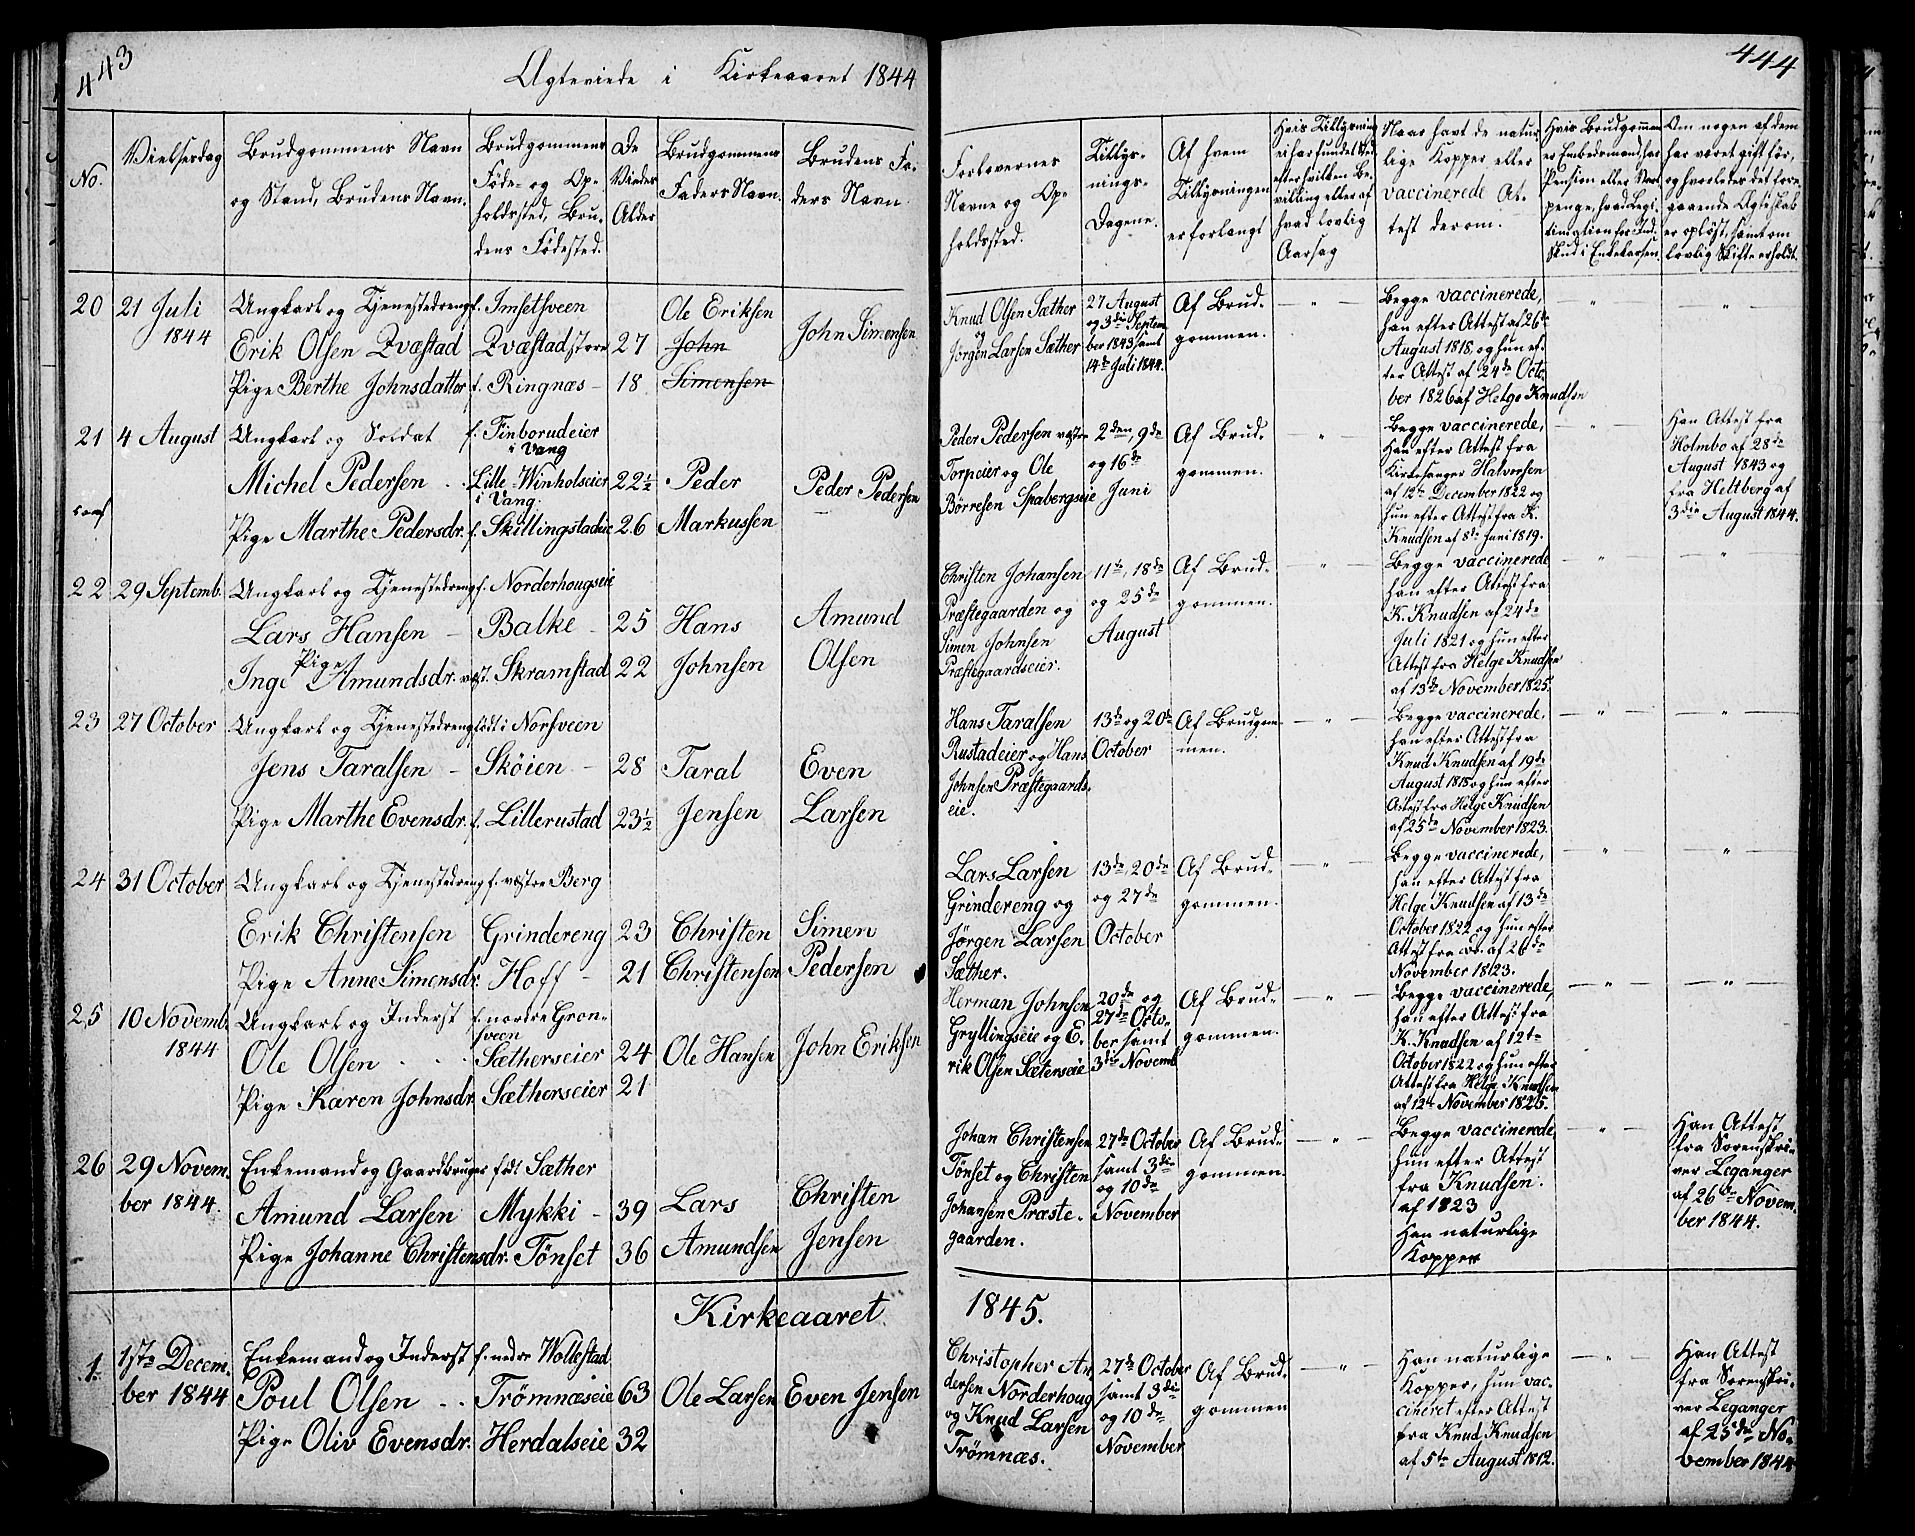 443
Ægteviede i Kirkeaaret 1844
No.
Vielsesdag
Brudgommens Navn
og Stand, Brudens Navn.
Brudgommens
Føde- og Op-
holdssted, Bru-
dens Fødested.
De
Viedes
Alder
Brudgommens
Faders Navn.
Brudens Fa-
ders Navn.
20 21 Juli
1844
Ungkarl og Tjenestedreng f. Imsetsveen
Erik Olsen Qvæstad Qvæstad store 27
Pige Berthe Johnsdatter f. Ringnæs 18
Ole Eriksen
John
Simensen
John Simensen
21 4 August
Ungkarl og Soldat f. Finborudeier
i Vang
Michel Pedersen Lille-Winholseier 22½ Peder Peder Pedersen
i Vang.
Pige Marthe Pedersdr. f. Skillingstadeie 26 Markussen
22 29 Septemb.
Ungkarl og Tjenestedreng f. Norderhougseie
Lars Hansen Balke 25 Hans Amund
Pige
Inge Amundsdr. vest. Skramstad 22 Johnsen Olsen
23 27 October
Ungkarl og Tjenestedreng født i Norsveen
Jens Taralsen Skøien 28 Taral Even
Pige Marthe Evensdr. f. Lillerustad 23½ Jensen Larsen
24 31 October
Ungkarl og Tjenestedreng f. vestre Berg
Erik Christensen Grindereng 23 Christen Simen
Pige Anne Simensdr. Hoff 21 Christensen Pedersen
25 10 Novemb.
1844
Ungkarl og Inderst f. nordre Gron-
sveen
Ole Olsen Sætherseier 24 Ole Hansen John Eriksen
Pige Karen Johnsdr. Sætherseier 21
26 29 Novem-
ber 1844.
Enkemand og Gaardbruger født Sæther
Amund Larsen Mykki 39 Lars Christen
Pige Johanne Christensdr. Tönset 36 Amundsen Jensen
Kirkeaaret
1. 1ste Decem-
ber 1844
Enkemand og Inderst f. nedre Wollestad
Poul Olsen Trömnæseie 63 Ole Larsen Even Jensen
Pige Oliv Evensdr. Herdalseie 32
444
Forlovernes
Navne og Op-
holdssted.
Tillys-
nings-
Dagene.
Af hvem
Tillysningen
er forlangt
Hvis Tillysning
ei har fundet Sted
efter hvilken Be-
villing eller af
hvad lovlig
Aarsag
Naar havt de natur-
lige Kopper eller
vaccinerede At-
test derom.
Hvis Brudgommen
er Embedsmand, har
Pension eller Vart-
penge, hvad Legi-
timation for Ind-
skud i Enkekassen.
Om nogen af dem
har været gift før,
og hvorledes det fore-
gaaende Ægteskab
er opløst, samt om
lovlig Skifte er holdt.
Knud Olsen Sæther
og
Jörgen Larsen Sæther
27 August
og 3die Septem-
ber 1843 samt
14de Juli 1844.
Af Brud-
gommen.
Begge vaccinerede,
han efter Attest af 26de
August 1818, og hun ef-
ter Attest af 24de Octo-
ber 1826 af Helge Knudsen
Peder Pedersen vestre
Torpeier og Ole
Börresen Spabergseie
2den, 9de
og 16de
Juni
Af Brud-
gommen.
Begge vaccinerede,
han efter Attest fra
Kirkesanger Halvorsen
af 12te December 1822 og
hun efter Attest fra K.
Knudsen af 8de Juni 1819.
Han Attest fra
Holmbo af 28de
August 1843 og
fra Heltberg af
3die August 1844.
Christen Johansen
Præstegaarden og
Simen Johnsen
Præstegaardseier.
11te, 18de
og 25de
August
Af Brud-
gommen.
Begge vaccinerede
han efter Attest fra
K. Knudsen af 24de
Juli 1821 og hun efter
Attest fra Helge Knudsen
af 13de November 1825.
Hans Taralsen
Rustadeier og Hans
Johnsen Præstegaards-
eie.
13de og 20de
October
Af Brudgom-
men.
Begge vaccinerede,
han efter Attest fra
Knud Knudsen af 19de
August 1818 og hun efter
Attest fra Helge Knudsen
af 25de November 1823.
Lars Larsen
Grindereng og
Jörgen Larsen
Sæther.
13de, 20de
og 27de
October
Af Brud-
gommen.
Begge vaccinerede,
han efter Attest fra
Helge Knudsen af 13de
October 1822 og hun efter
Attest fra do. af 26de
November 1823.
Herman Johnsen
Gryllingseie og E-
rik Olsen Sæterseie
20de og
27de Octo-
ber samt
3die Novemb.
Af Brud-
gommen.
Begge vaccinerede,
han efter Attest fra
K. Knudsen af 12te
October 1822 og hun efter
Attest fra Helge Knudsen
af 12te November 1825.
Johan Christensen
Tönset og Christen
Johansen Præste-
gaarden.
27de October
samt 3die
og 10de
November
Af Brud-
gommen.
Begge vaccinerede
hun efter Attest
fra Knudsen.
af 1823
Han naturlige
Kopper
Han Attest
fra Sorenskri-
ver Leganger
af 26de Novem-
ber 1844.
1845.
Christopher An-
dersen Norderhoug
og Knud Larsen
Trömnæs.
27de October
samt 3die
og 10de
November
Af Brud-
gommen
Han naturlige
Kopper, hun vac-
cineret efter Attest
fra Knud Knudsen
af 5te August 1812.
Han Attest
fra Sorenskri-
ver Leganger
af 25de No-
vember 1844